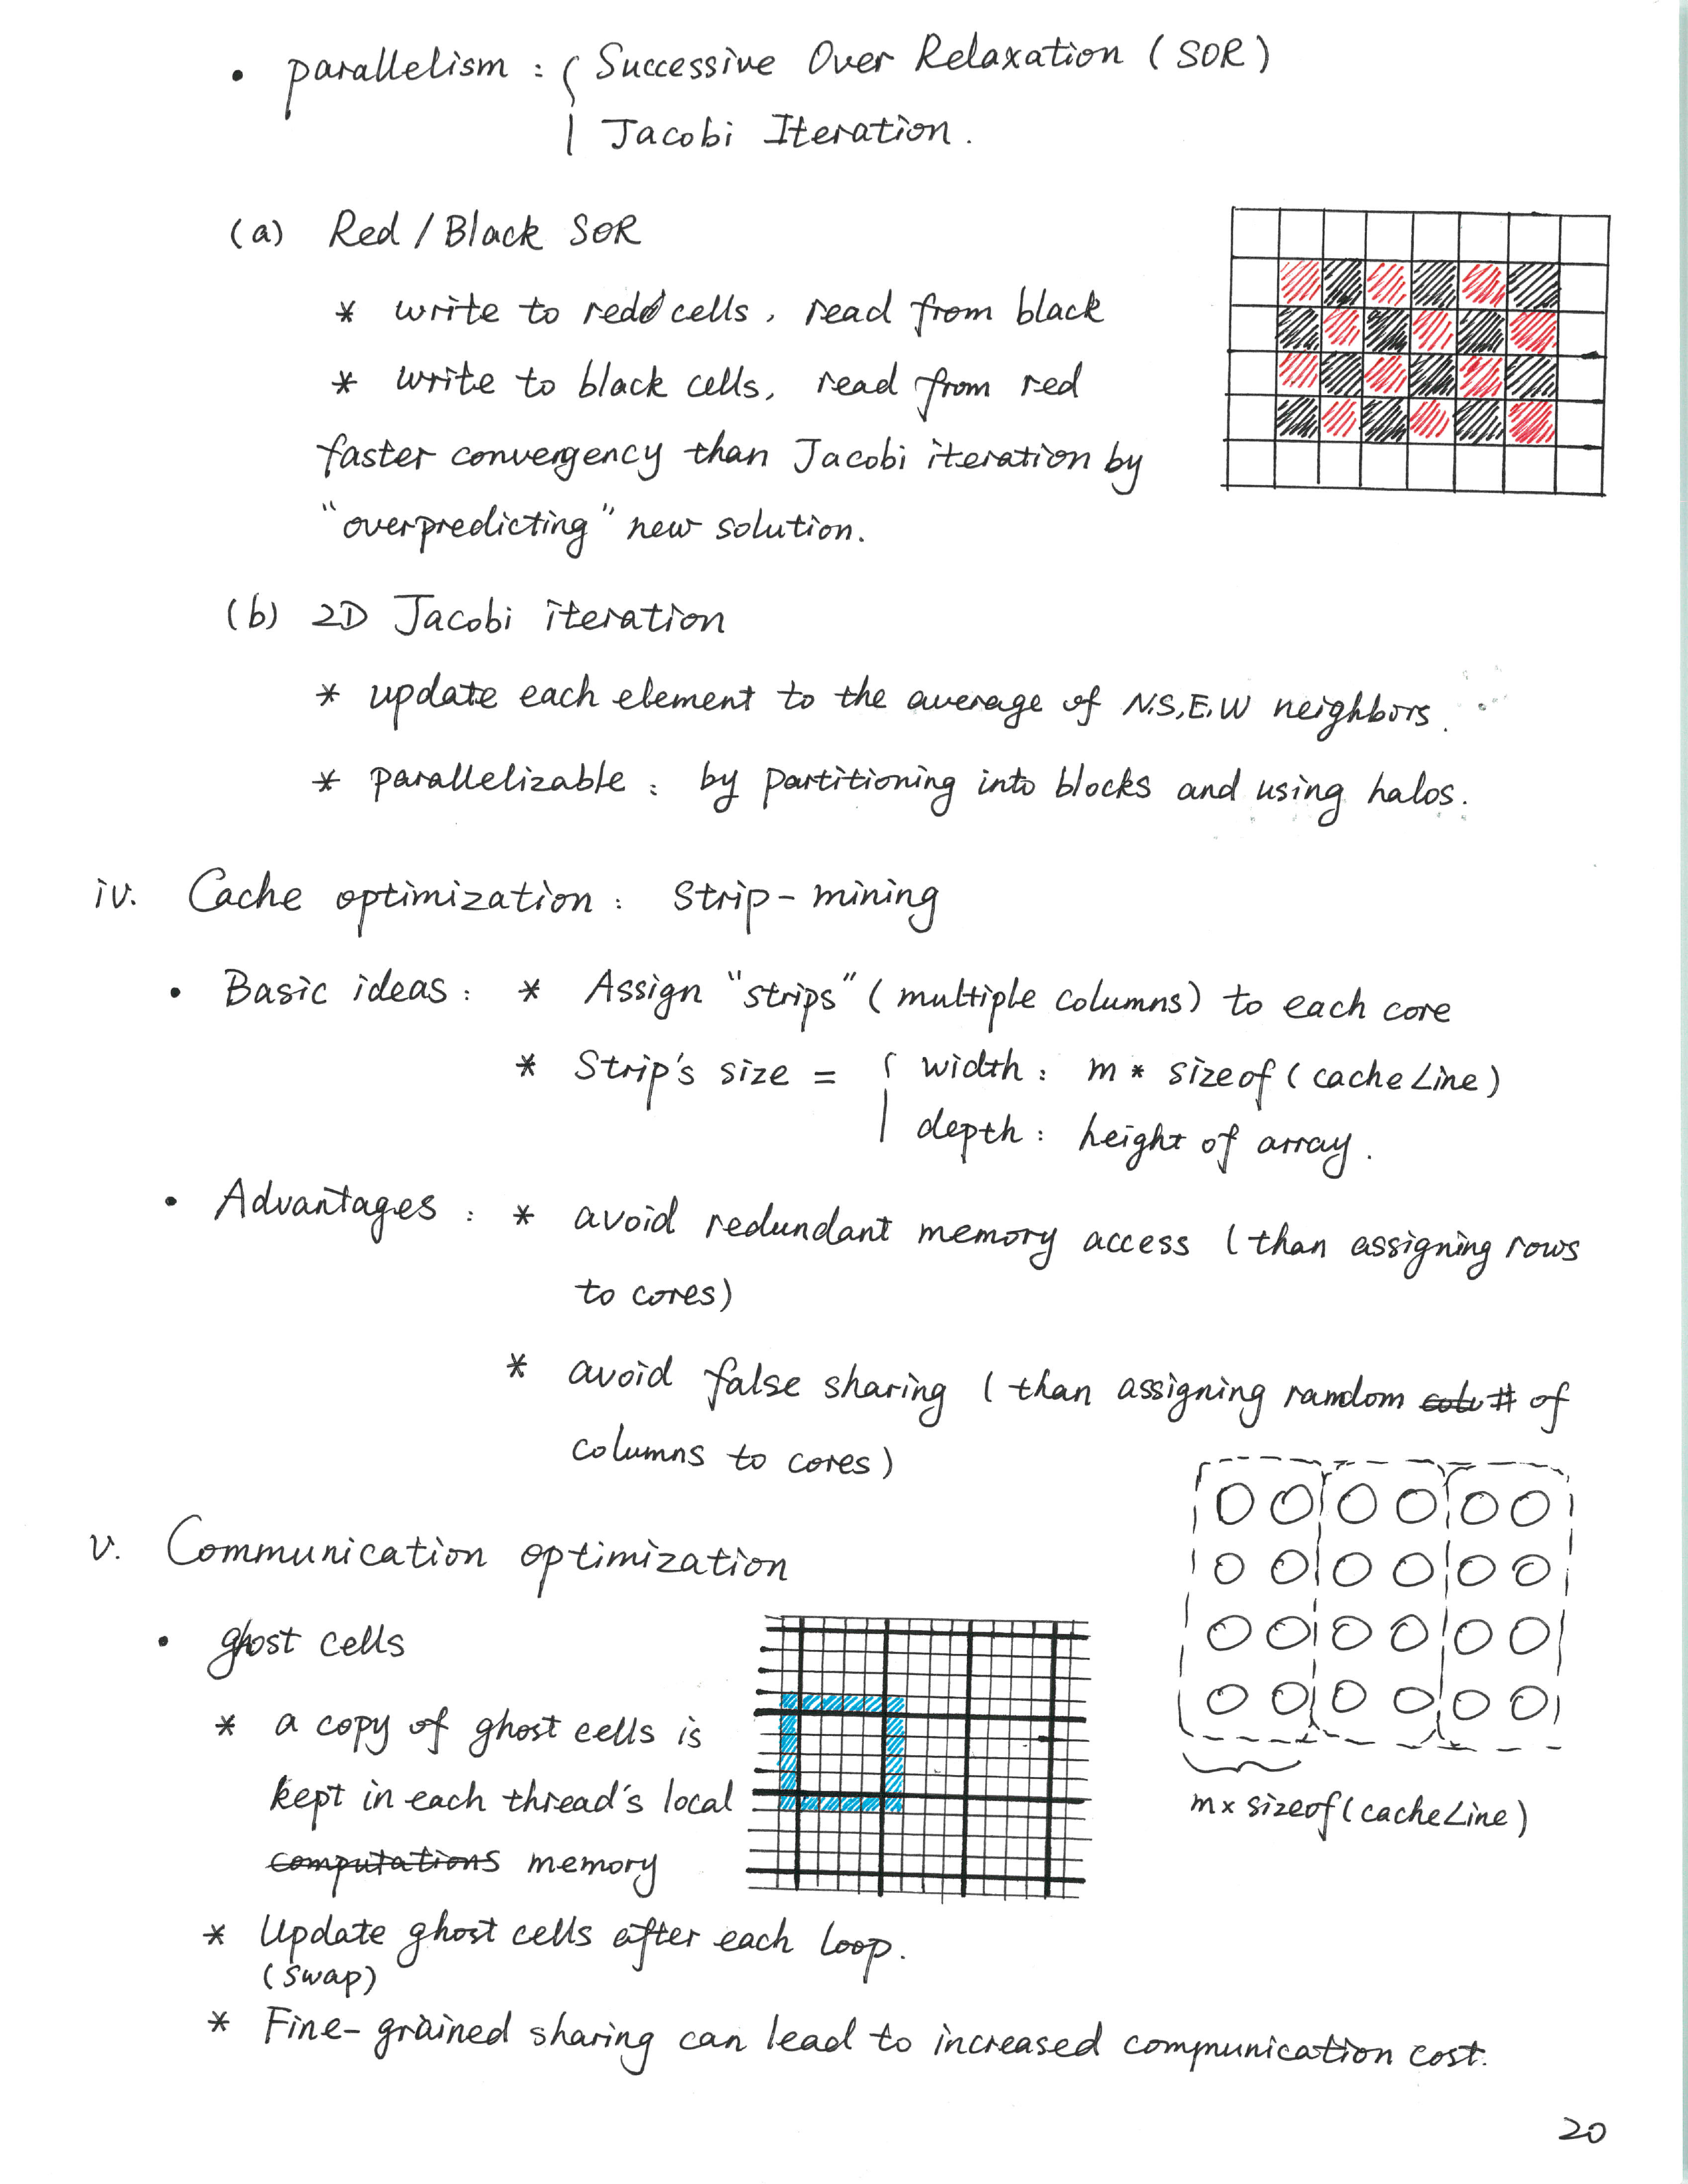 • parallelism : { Successive Over Relaxation (SOR)
Jacobi Iteration.
(a) Red / Black SOR
* write to red cells, read from black
* write to black cells, read from red
faster convergency than Jacobi iteration by
"overpredicting" new solution.
(b) 2D Jacobi iteration
* update each element to the average of N.S.E.W neighbors.
* parallelizable : by partitioning into blocks and using halos.
iv. Cache optimization : Strip-mining
• Basic ideas : * Assign "strips" (multiple columns) to each core
* Strip's size = { width : m * sizeof (cacheLine)
depth : height of array.
• Advantages : * avoid redundant memory access (than assigning rows
to cores)
* avoid false sharing (than assigning random # of
columns to cores)
v. Communication optimization
• ghost cells
* a copy of ghost cells is
kept in each thread's local
computations memory
* Update ghost cells after each loop.
(swap)
* Fine-grained sharing can lead to increased communication cost.
m x sizeof (cacheLine)
20